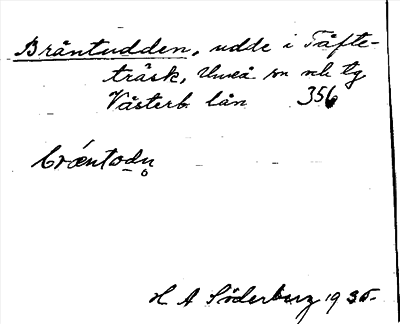 Bräntudden, udde i Täfte-
träsk, Umeå sn och tg
Västerb. län 356
bræntodn
H A Söderberg 1935